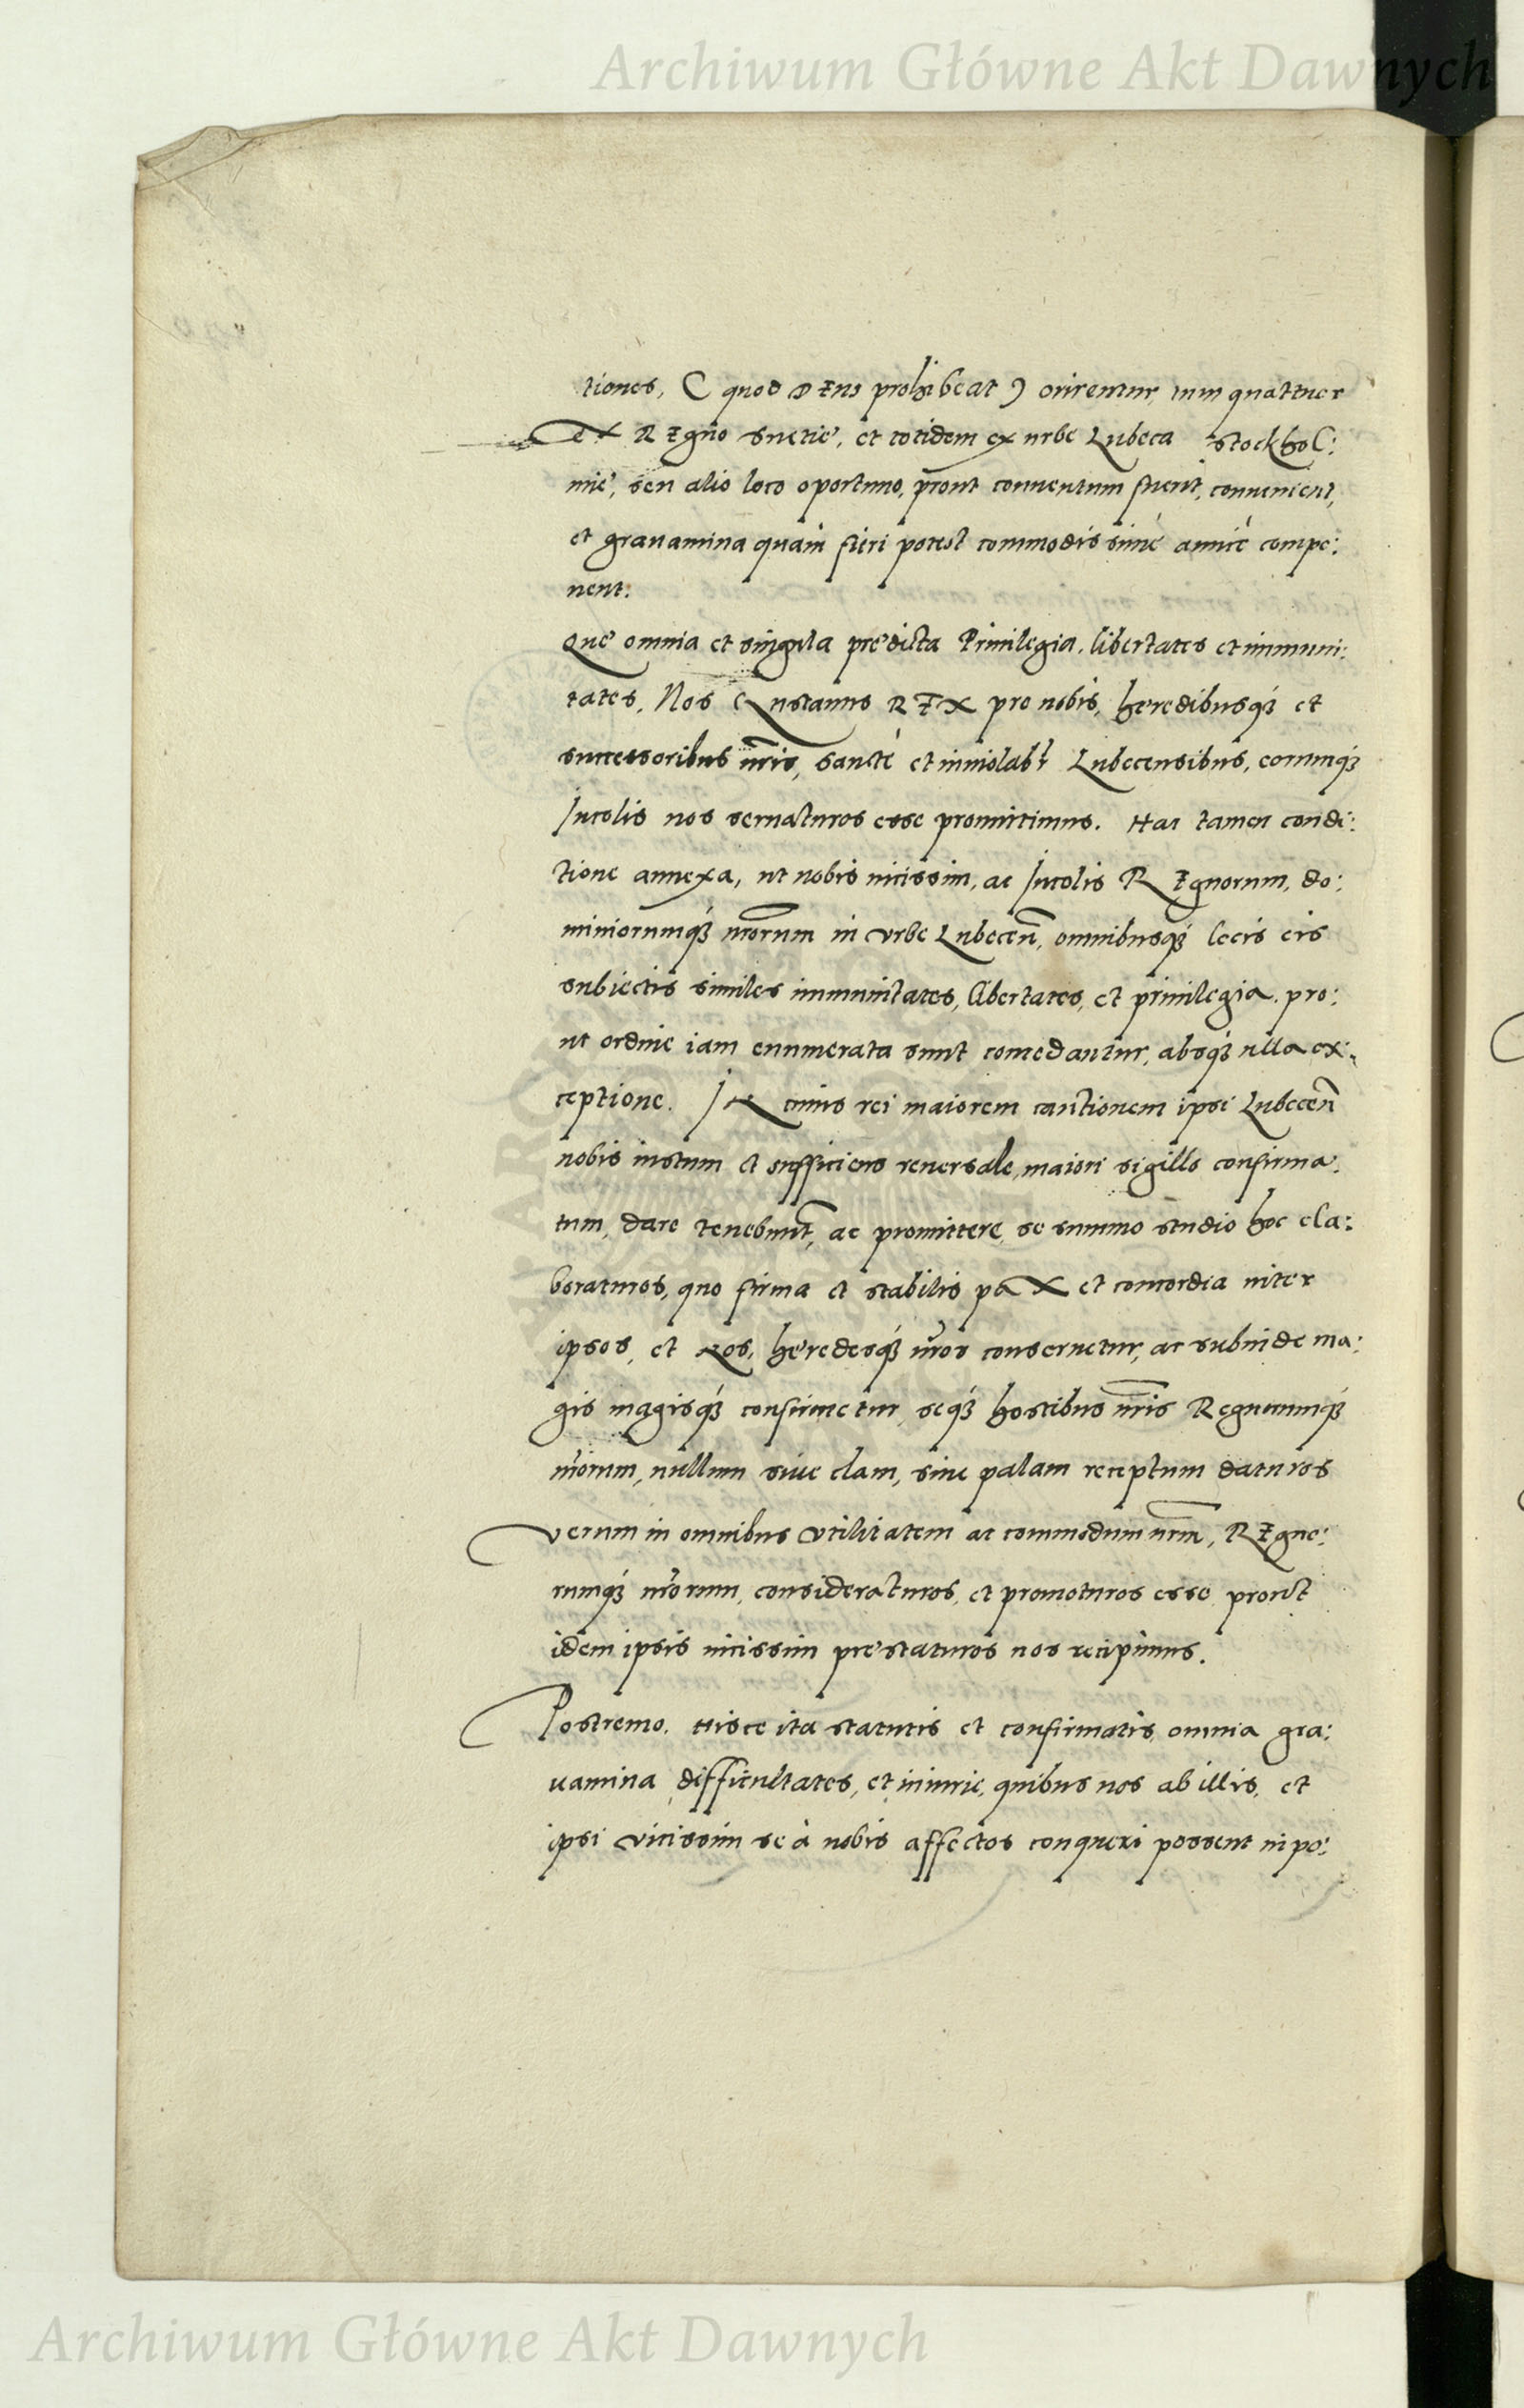 Archiwum Główne Akt Dawnych
tiones, (quod DEus prohibeat) orirentur, tum quattuor
eX REgno Suetię, et totidem ex urbe Lubeca Stockhol:
mię, seu alio loco oportuno, prout conuentum fuerit, conuenient,
et grauamina quàm fieri potest commodissimè amicè compo:
nent.
Quę omnia et singula prędicta Priuilegia, libertates et immuni:
tates, Nos Gustauus REX pro nobis, hęredibusq́ue et
successoribus nr̃is, sanctè et inuiolabr̃ Lubecensibus, eorumq́ue
Incolis nos seruaturos esse promittimus. Hac tamen condi:
tione annexa, ut nobis uicissim, ac Incolis REgnorum, do:
miniorumq́ue nr̃orum in vrbe Lubecen̄, omnibusq́ue locis eis
subiectis similes immunitates, libertates, et priuilegia, pro:
ut ordine iam enumerata sunt concedantur, absq́ue ulla ex:
ceptione. IN cuius rei maiorem cautionem ipsi Lubecen̄
nobis iustum et sufficiens reuersale, maiori sigillo confirma:
tum, dare tenebunt̃, ac promittere, se summo studio hoc ela:
boraturos, quo firma et stabilis paX et concordia inter
ipsos, et Nos, hęredesq́ue nr̃os conseruetur, ac subinde ma:
gis magisq́ue confirmetur, seq́ue hostibus nr̃is Regnorumq́ue
nr̃orum, nullum siue clam, siue palam receptum daturos
verum in omnibus vtilitatem ac commodum nr̃m, REgno:
rumq́ue nr̃orum, consideraturos, et promoturos esse, prout
idem ipsis uicissim pręstaturos nos recipimus.
Postremo. Hisce ita statutis et confirmatis, omnia gra:
uamina, difficultates, et iniurię, quibus nos ab illis, et
ipsi vicissim se à nobis affectos conqueri possent in po:
Archiwum Główne Akt Dawnych